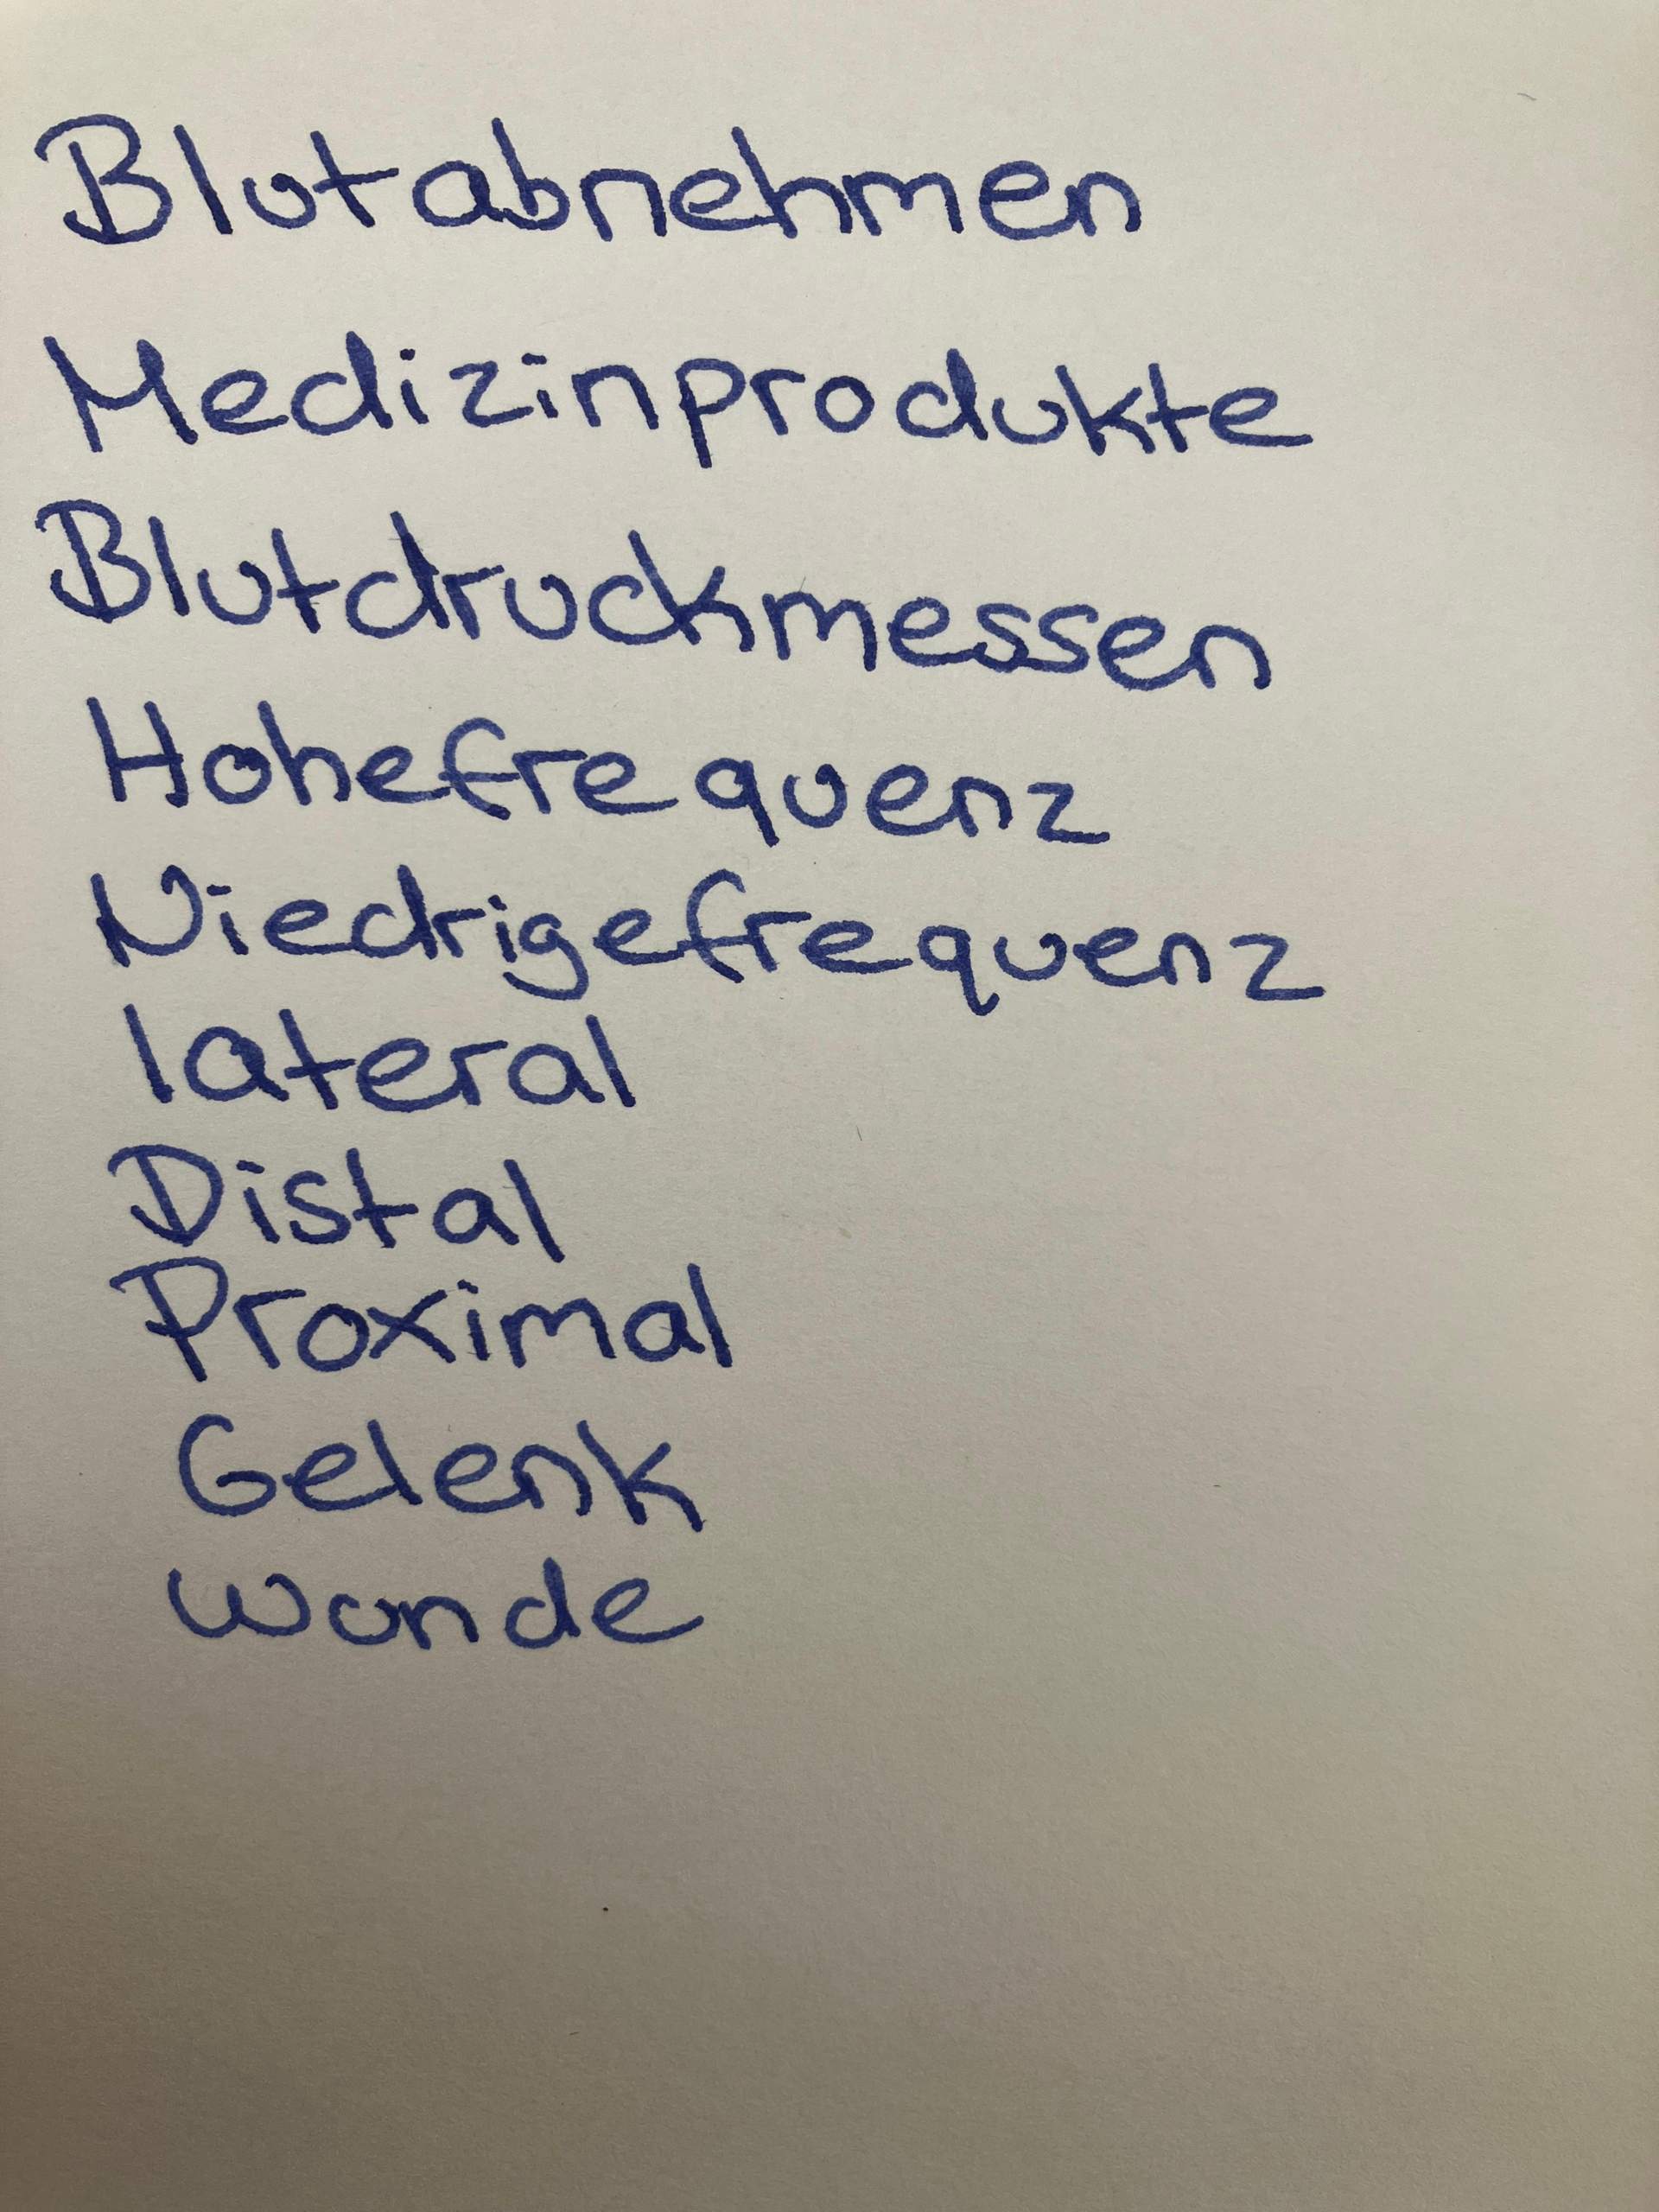 Blutabnehmen
Medizinprodukte
Blutdruckmessen
Hohefrequenz
Niedrigefrequenz
lateral
Distal
Proximal
Gelenk
Wunde